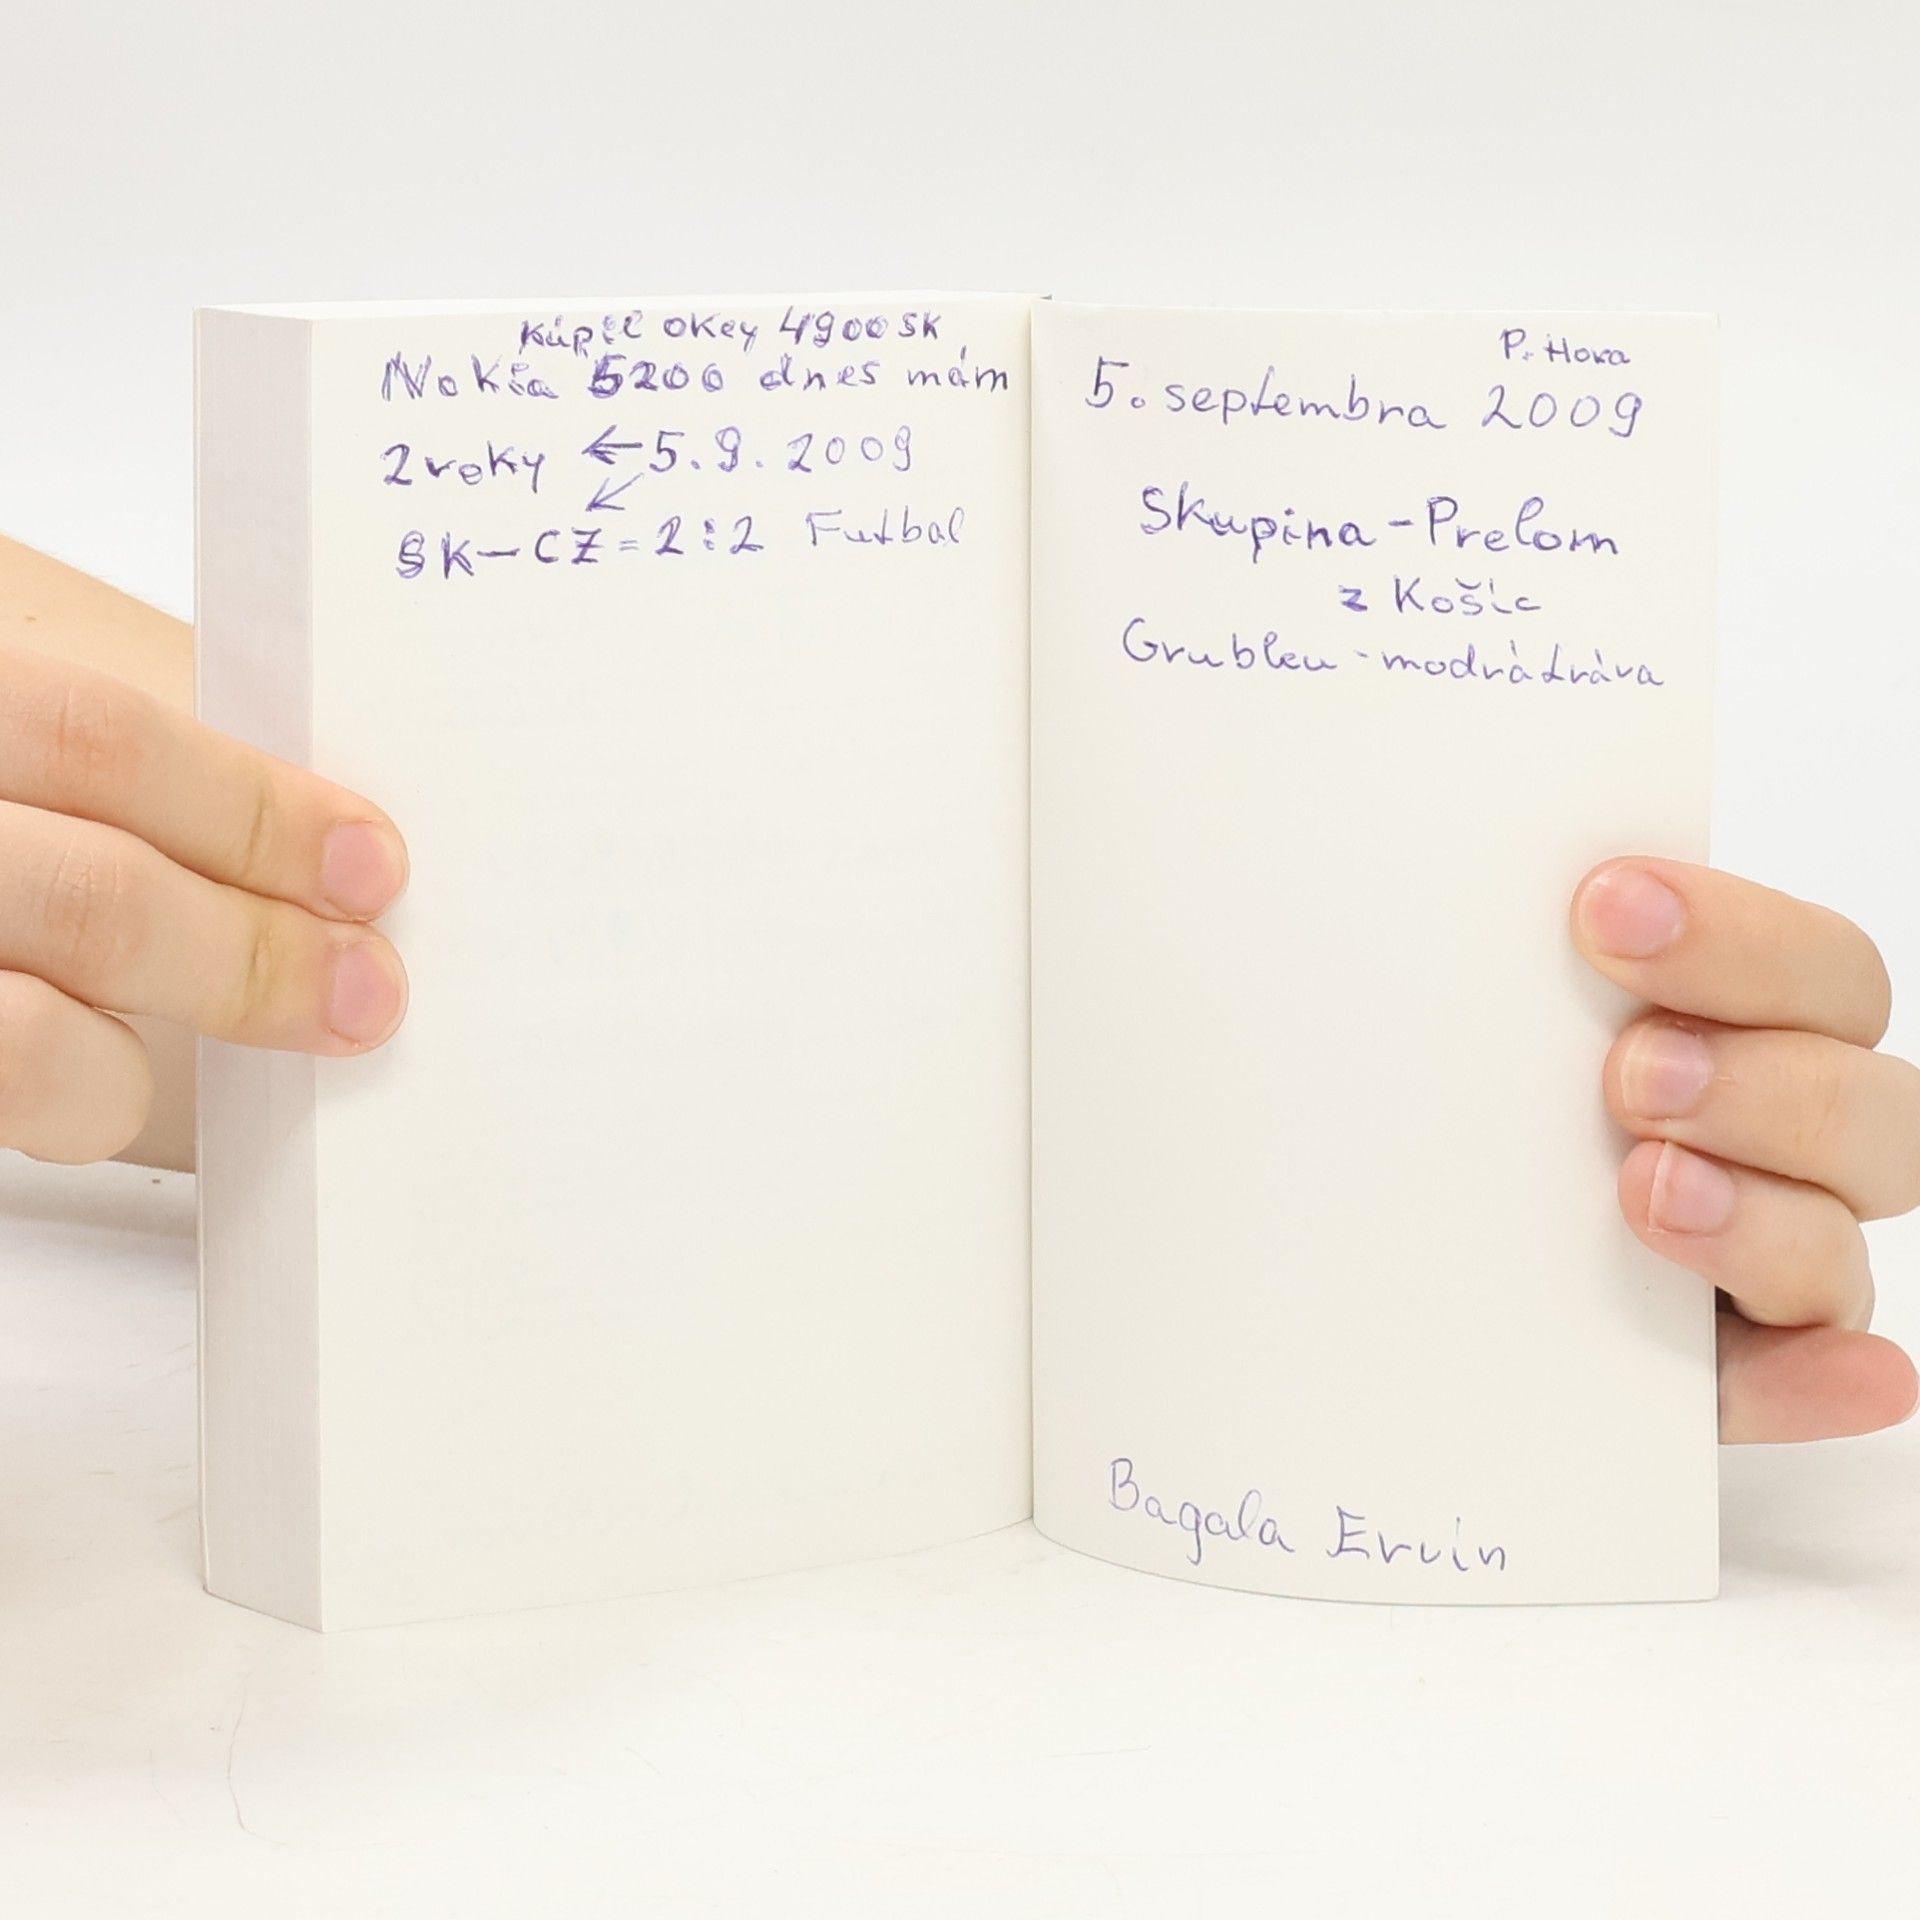 Kúpil okey 4900 SK
Nokia 5200 dnes mám
2 roky ← 5.9.2009
↙
SK-CZ = 2:2 Futbal
P. Hora
5. septembra 2009
Skupina - Prelom
z Košic
Grubleu - modrá tráva
Bagala Ervín